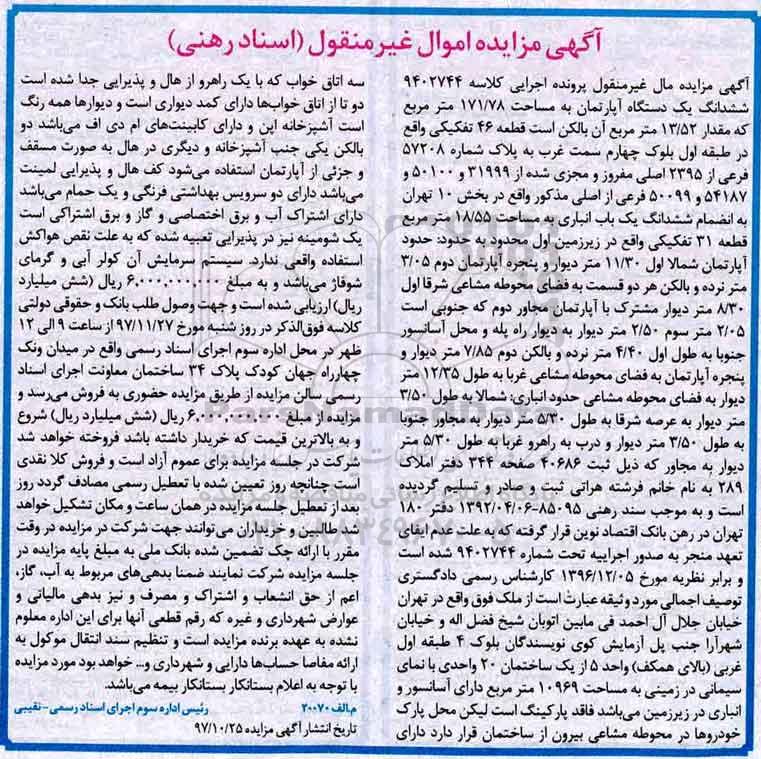 آگهی مزایده اموال غیرمنقول (اسناد رهنی)
آگهی مزایده مال غیرمنقول پرونده اجرایی کلاسه ۹۴۰۲۷۴۴
ششدانگ یک دستگاه آپارتمان به مساحت ۱۷۱/۷۸ متر مربع
که مقدار ۱۳/۵۲ متر مربع آن بالکن است قطعه ۴۶ تفکیکی واقع
در طبقه اول بلوک چهارم سمت غرب به پلاک شماره ۵۷۲۰۸
فرعی از ۲۳۹۵ اصلی مفروز و مجزی شده از ۳۱۹۹۹ و ۵۰۱۰۰ و
۵۴۱۸۷ و ۵۰۰۹۹ فرعی از اصلی مذکور واقع در بخش ۱۰ تهران
به انضمام ششدانگ یک باب انباری به مساحت ۱۸/۵۵ متر مربع
قطعه ۳۱ تفکیکی واقع در زیرزمین اول محدود به حدود: حدود
آپارتمان شمالا اول ۱۱/۳۰ متر دیوار و پنجره آپارتمان دوم ۳/۰۵
متر نرده و بالکن هر دو قسمت به فضای محوطه مشاعی شرقا اول
۸/۳۰ متر دیوار مشترک با آپارتمان مجاور دوم که جنوبی است
۲/۰۵ متر سوم ۲/۵۰ متر دیوار به دیوار راه پله و محل آسانسور
جنوبا به طول اول ۴/۴۰ متر نرده و بالکن دوم ۷/۸۵ متر دیوار و
پنجره آپارتمان به فضای محوطه مشاعی غربا به طول ۱۲/۳۵ متر
دیوار به فضای محوطه مشاعی حدود انباری: شمالا به طول ۳/۵۰
متر دیوار به عرصه شرقا به طول ۵/۳۰ متر دیوار به مجاور جنوبا
به طول ۳/۵۰ متر دیوار و درب به راهرو غربا به طول ۵/۳۰ متر
دیوار به مجاور که ذیل ثبت ۴۰۶۸۶ صفحه ۳۴۴ دفتر املاک
۲۸۹ به نام خانم فرشته هراتی ثبت و صادر و تسلیم گردیده
است و به موجب سند رهنی ۸۵۰۹۵-۱۳۹۲/۰۴/۰۶ دفتر ۱۸۰
تهران در رهن بانک اقتصاد نوین قرار گرفته که به علت عدم ایفای
تعهد منجر به صدور اجراییه تحت شماره ۹۴۰۲۷۴۴ شده است
و برابر نظریه مورخ ۱۳۹۶/۱۲/۰۵ کارشناس رسمی دادگستری
توصیف اجمالی مورد وثیقه عبارت است از ملک فوق واقع در تهران
خیابان جلال آل احمد فی مابین اتوبان شیخ فضل اله و خیابان
شهرآرا جنب پل آزمایش کوی نویسندگان بلوک ۴ طبقه اول
غربی (بالای همکف) واحد ۵ از یک ساختمان ۲۰ واحدی با نمای
سیمانی در زمینی به مساحت ۱۰۹۶۹ متر مربع دارای آسانسور و
انباری در زیرزمین می‌باشد فاقد پارکینگ است لیکن محل پارک
خودروها در محوطه مشاعی بیرون از ساختمان قرار دارد دارای
سه اتاق خواب که با یک راهرو از هال و پذیرایی جدا شده است
دو تا از اتاق خواب‌ها دارای کمد دیواری است و دیوارها همه رنگ
است آشپزخانه اپن و دارای کابینت‌های ام دی اف می‌باشد دو
بالکن یکی جنب آشپزخانه و دیگری در هال به صورت مسقف
و جزئی از آپارتمان استفاده می‌شود کف هال و پذیرایی لمینت
می‌باشد دارای دو سرویس بهداشتی فرنگی و یک حمام می‌باشد
دارای اشتراک آب و برق اختصاصی و گاز و برق اشتراکی است
یک شومینه نیز در پذیرایی تعبیه شده که به علت نقص هواکش
استفاده واقعی ندارد. سیستم سرمایش آن کولر آبی و گرمای
شوفاژ می‌باشد و به مبلغ ۶.۰۰۰.۰۰۰.۰۰۰ ریال (شش میلیارد
ریال) ارزیابی شده است و جهت وصول طلب بانک و حقوقی دولتی
کلاسه فوق‌الذکر در روز شنبه مورخ ۹۷/۱۱/۲۷ از ساعت ۹ الی ۱۲
ظهر در محل اداره سوم اجرای اسناد رسمی واقع در میدان ونک
چهارراه جهان کودک پلاک ۳۴ ساختمان معاونت اجرای اسناد
رسمی سالن مزایده از طریق مزایده حضوری به فروش می‌رسد و
مزایده از مبلغ ۶.۰۰۰.۰۰۰.۰۰۰ ریال (شش میلیارد ریال) شروع
و به بالاترین قیمت که خریدار داشته باشد فروخته خواهد شد
شرکت در جلسه مزایده برای عموم آزاد است و فروش کلا نقدی
است چنانچه روز تعیین شده با تعطیل رسمی مصادف گردد روز
بعد از تعطیل جلسه مزایده در همان ساعت و مکان تشکیل خواهد
شد طالبین و خریداران می‌توانند جهت شرکت در مزایده در وقت
مقرر با ارائه چک تضمین شده بانک ملی به مبلغ پایه مزایده در
جلسه مزایده شرکت نمایند ضمنا بدهی‌های مربوط به آب، گاز،
اعم از حق انشعاب و اشتراک و مصرف و نیز بدهی مالیاتی و
عوارض شهرداری و غیره که رقم قطعی آنها برای این اداره معلوم
نشده به عهده برنده مزایده است و تنظیم سند انتقال موکول به
ارائه مفاصا حساب‌ها دارایی و شهرداری و... خواهد بود مورد مزایده
با توجه به اعلام بستانکار بستانکار بیمه می‌باشد.
م.الف ۲۰۰۷۰ رئیس اداره سوم اجرای اسناد رسمی-نقیبی
تاریخ انتشار آگهی مزایده ۹۷/۱۰/۲۵
ParsNamadData